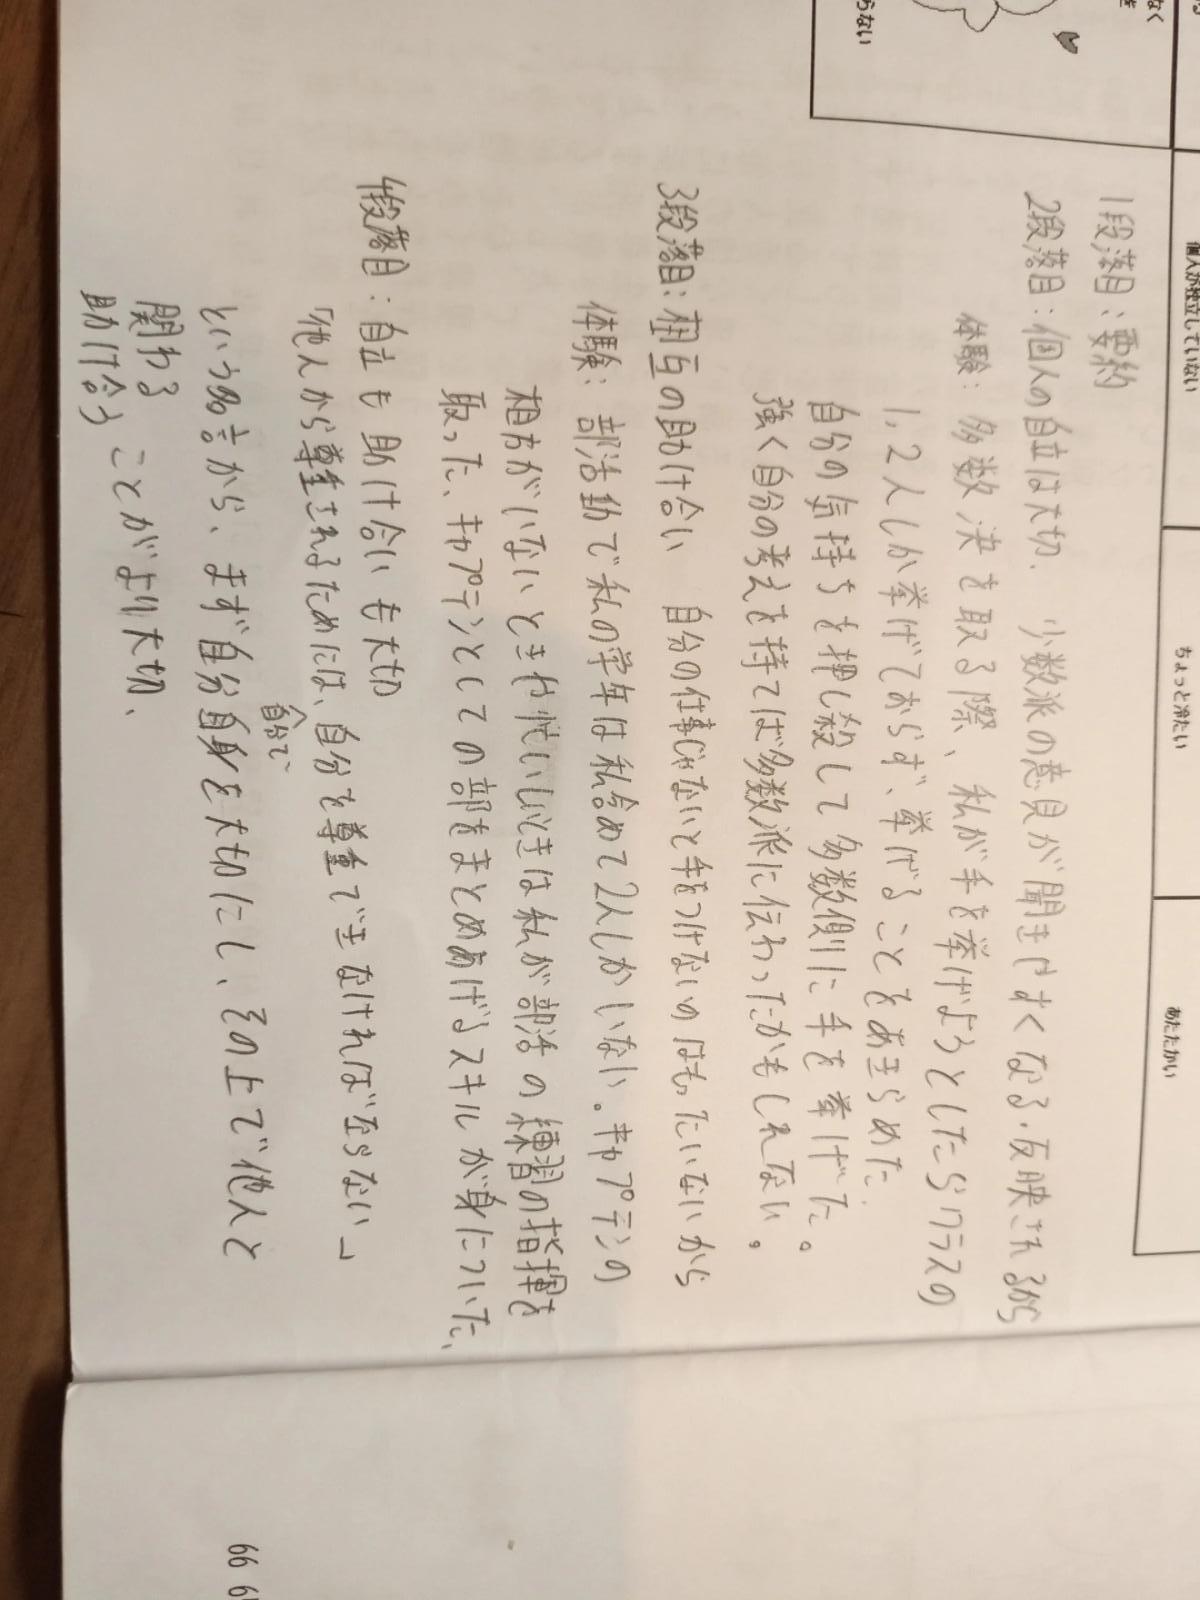 なく
らない
個人が独立していない
ちょっと冷たい
あたたかい
1段落目:要約
2段落目:個人の自立は大切. 少数派の意見が聞きやすくなる・反映されるから
体験:多数決を取る際、私が手を挙げようとしたらクラスの
1,2人しか挙げておらず、挙げることをあきらめた.
自分の気持ちを押し殺して多数側に手を挙げた。
強く自分の考えを持てば多数派に伝わったかもしれない。
3段落目:相互の助け合い 自分の仕事じゃないと手をつけないのはもったいないから
体験:部活動で私の学年は私含めて2人しかいない。キャプテンの
相方がいないときや忙しいときは私が部活の練習の指揮を
取った、キャプテンとしての部をまとめあげるスキルが身についた、
4段落目:自立も助け合いも大切
「他人から尊重されるためには、自分で自分を尊重できなければならない」
という名言から、まず自分自身を大切にし、その上で他人と
関わる
助け合う ことがより大切、
99